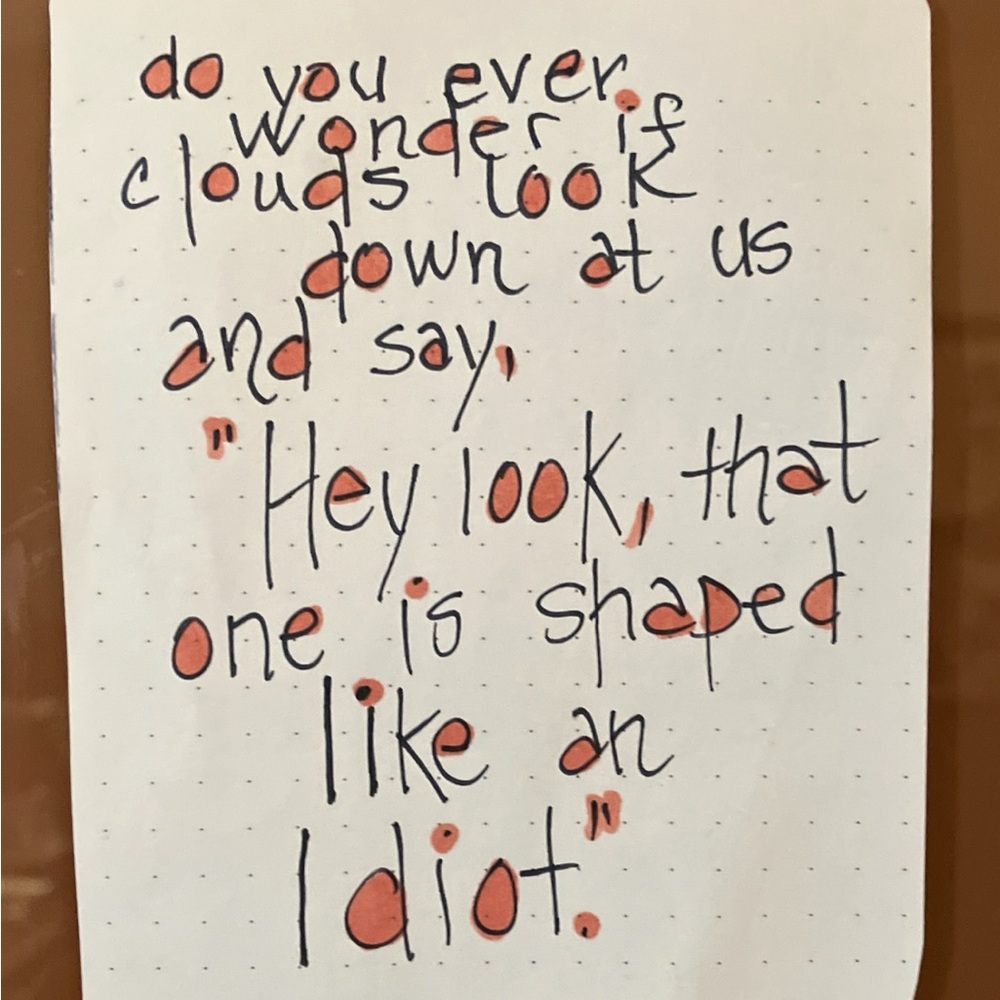 do you ever
wonder if
clouds look
down at us
and say,
"Hey look, that
one is shaped
like an
Idiot."